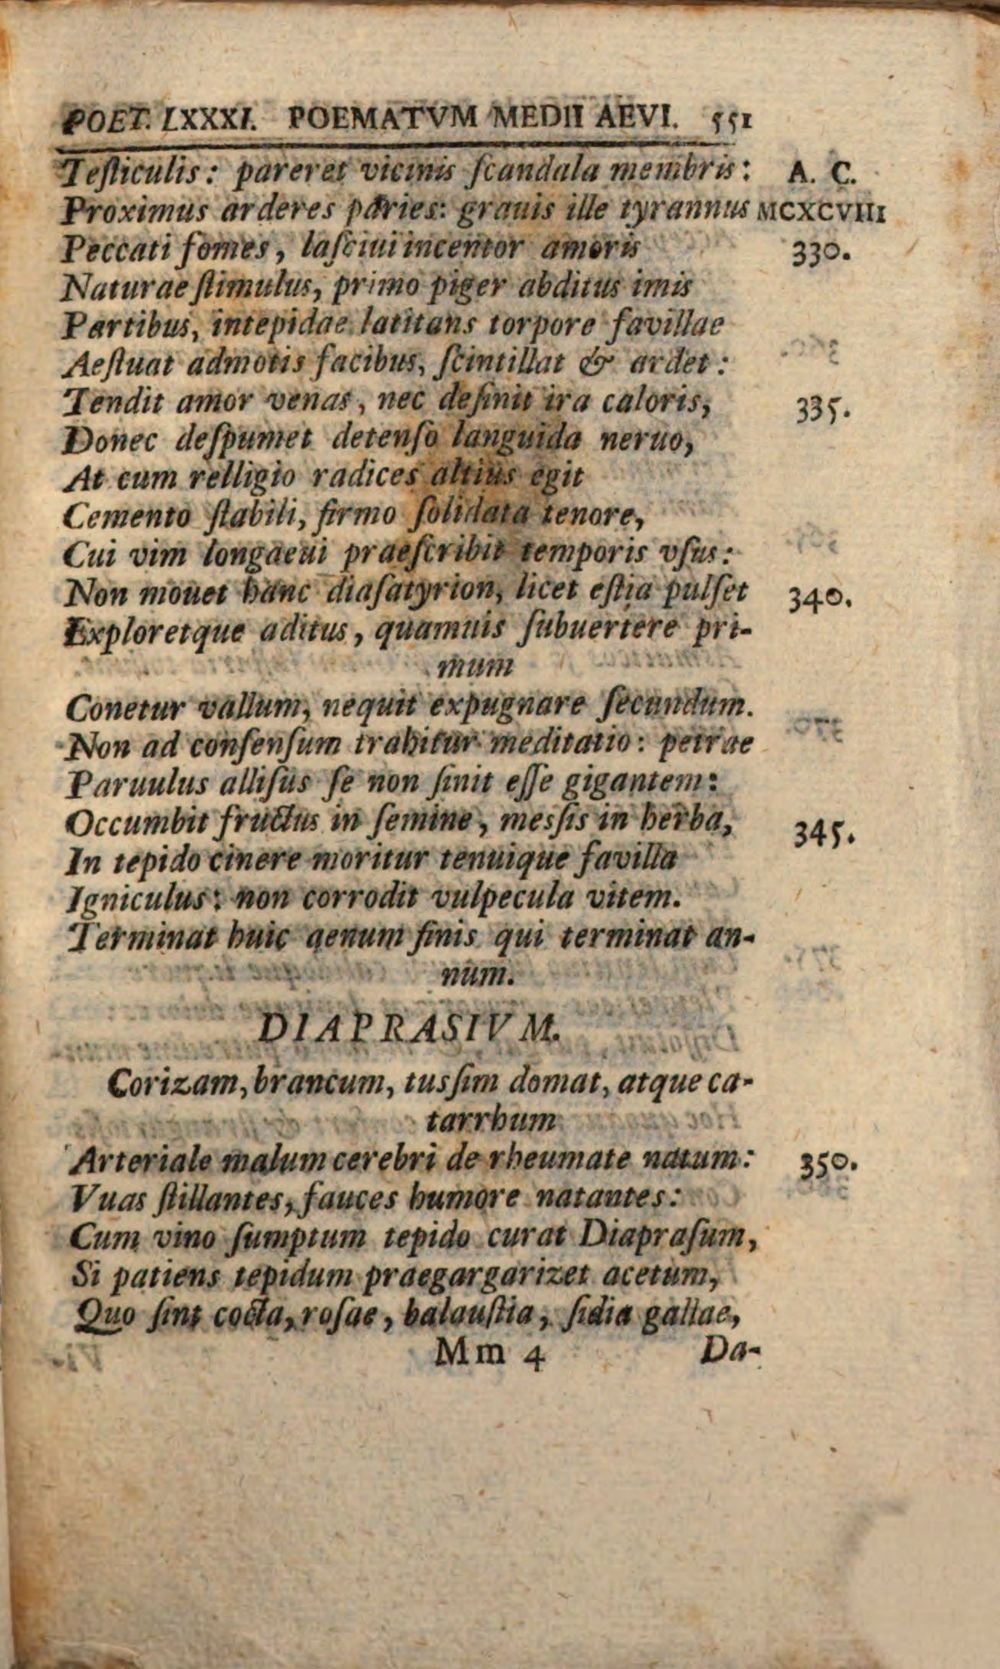 POET. LXXXI. POEMATVM MEDII AEVI. 551
Teſticulis: pareret vicinis ſcandala membris: A. C.
Proximus arderes paries: grauis ille tyrannus MCXCVIII
Peccati fomes, laſciui incentor amoris 330.
Naturae ſtimulus, primo piger abditus imis
Partibus, intepidae latitans torpore favillae
Aeſtuat admotis facibus, ſcintillat & ardet:
Tendit amor venas, nec definit ira caloris, 335.
Donec deſpumet detenſo languida neruo,
At cum relligio radices altius egit
Cemento ſtabili, firmo ſolidata tenore,
Cui vim longaeui praeſcribit temporis vſus:
Non mouet hanc diaſatyrion, licet eſtia pulſet 340.
Exploretque aditus, quamuis ſubuertere pri-
mum
Conetur vallum, nequit expugnare ſecundum.
Non ad conſenſum trahitur meditatio: petrae
Paruulus alliſus ſe non ſinit eſſe gigantem:
Occumbit fructus in ſemine, messis in herba, 345.
In tepido cinere moritur tenuique favilla
Igniculus: non corrodit vulpecula vitem.
Terminat huic aenum finis qui terminat an-
num.
DIAPRASIVM.
Corizam, brancum, tusſim domat, atque ca-
tarrhum
Arteriale malum cerebri de rheumate natum: 350.
Vuas ſtillantes, fauces humore natantes:
Cum vino ſumptum tepido curat Diapraſum,
Si patiens tepidum praegargarizet acetum,
Quo ſint cocta, roſae, balauſtia, ſidia gallae,
Mm 4 Da-